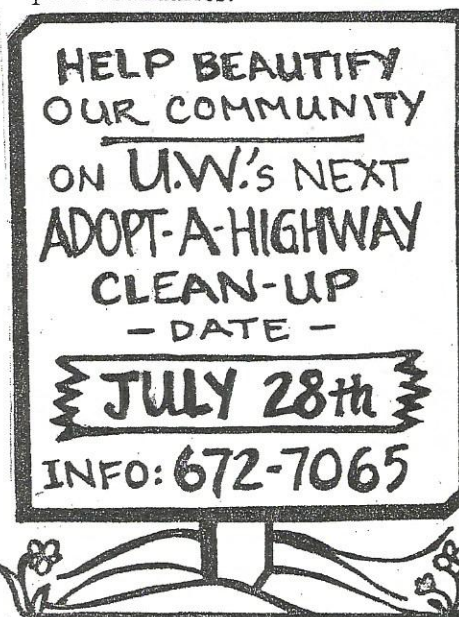 HELP BEAUTIFY
OUR COMMUNITY
ON U.W.'s NEXT
ADOPT-A-HIGHWAY
CLEAN-UP
- DATE -
JULY 28th
INFO: 672-7065